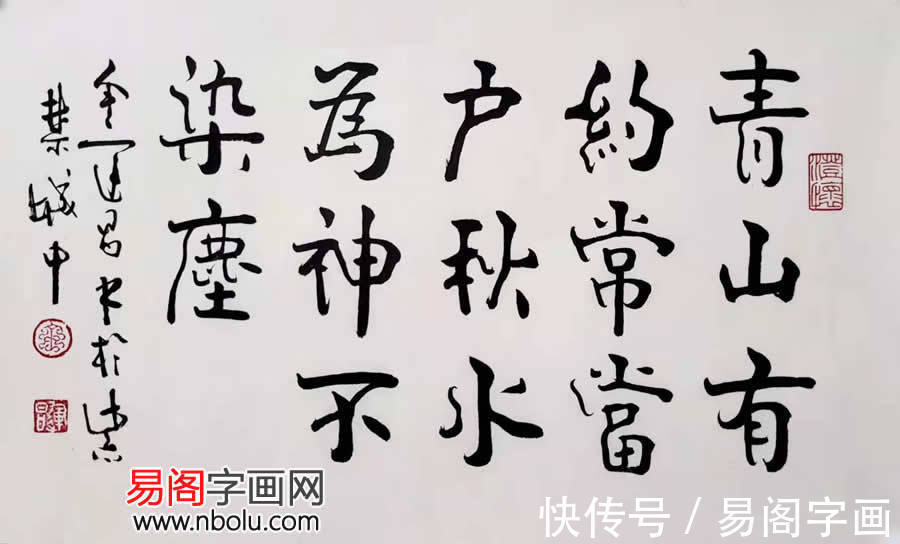 澄懷
青山有
約常當
户秋水
為神不
染塵
金運昌书於紫
禁城中
易阁字画网
www.nbolu.com
快传号 / 易阁字画